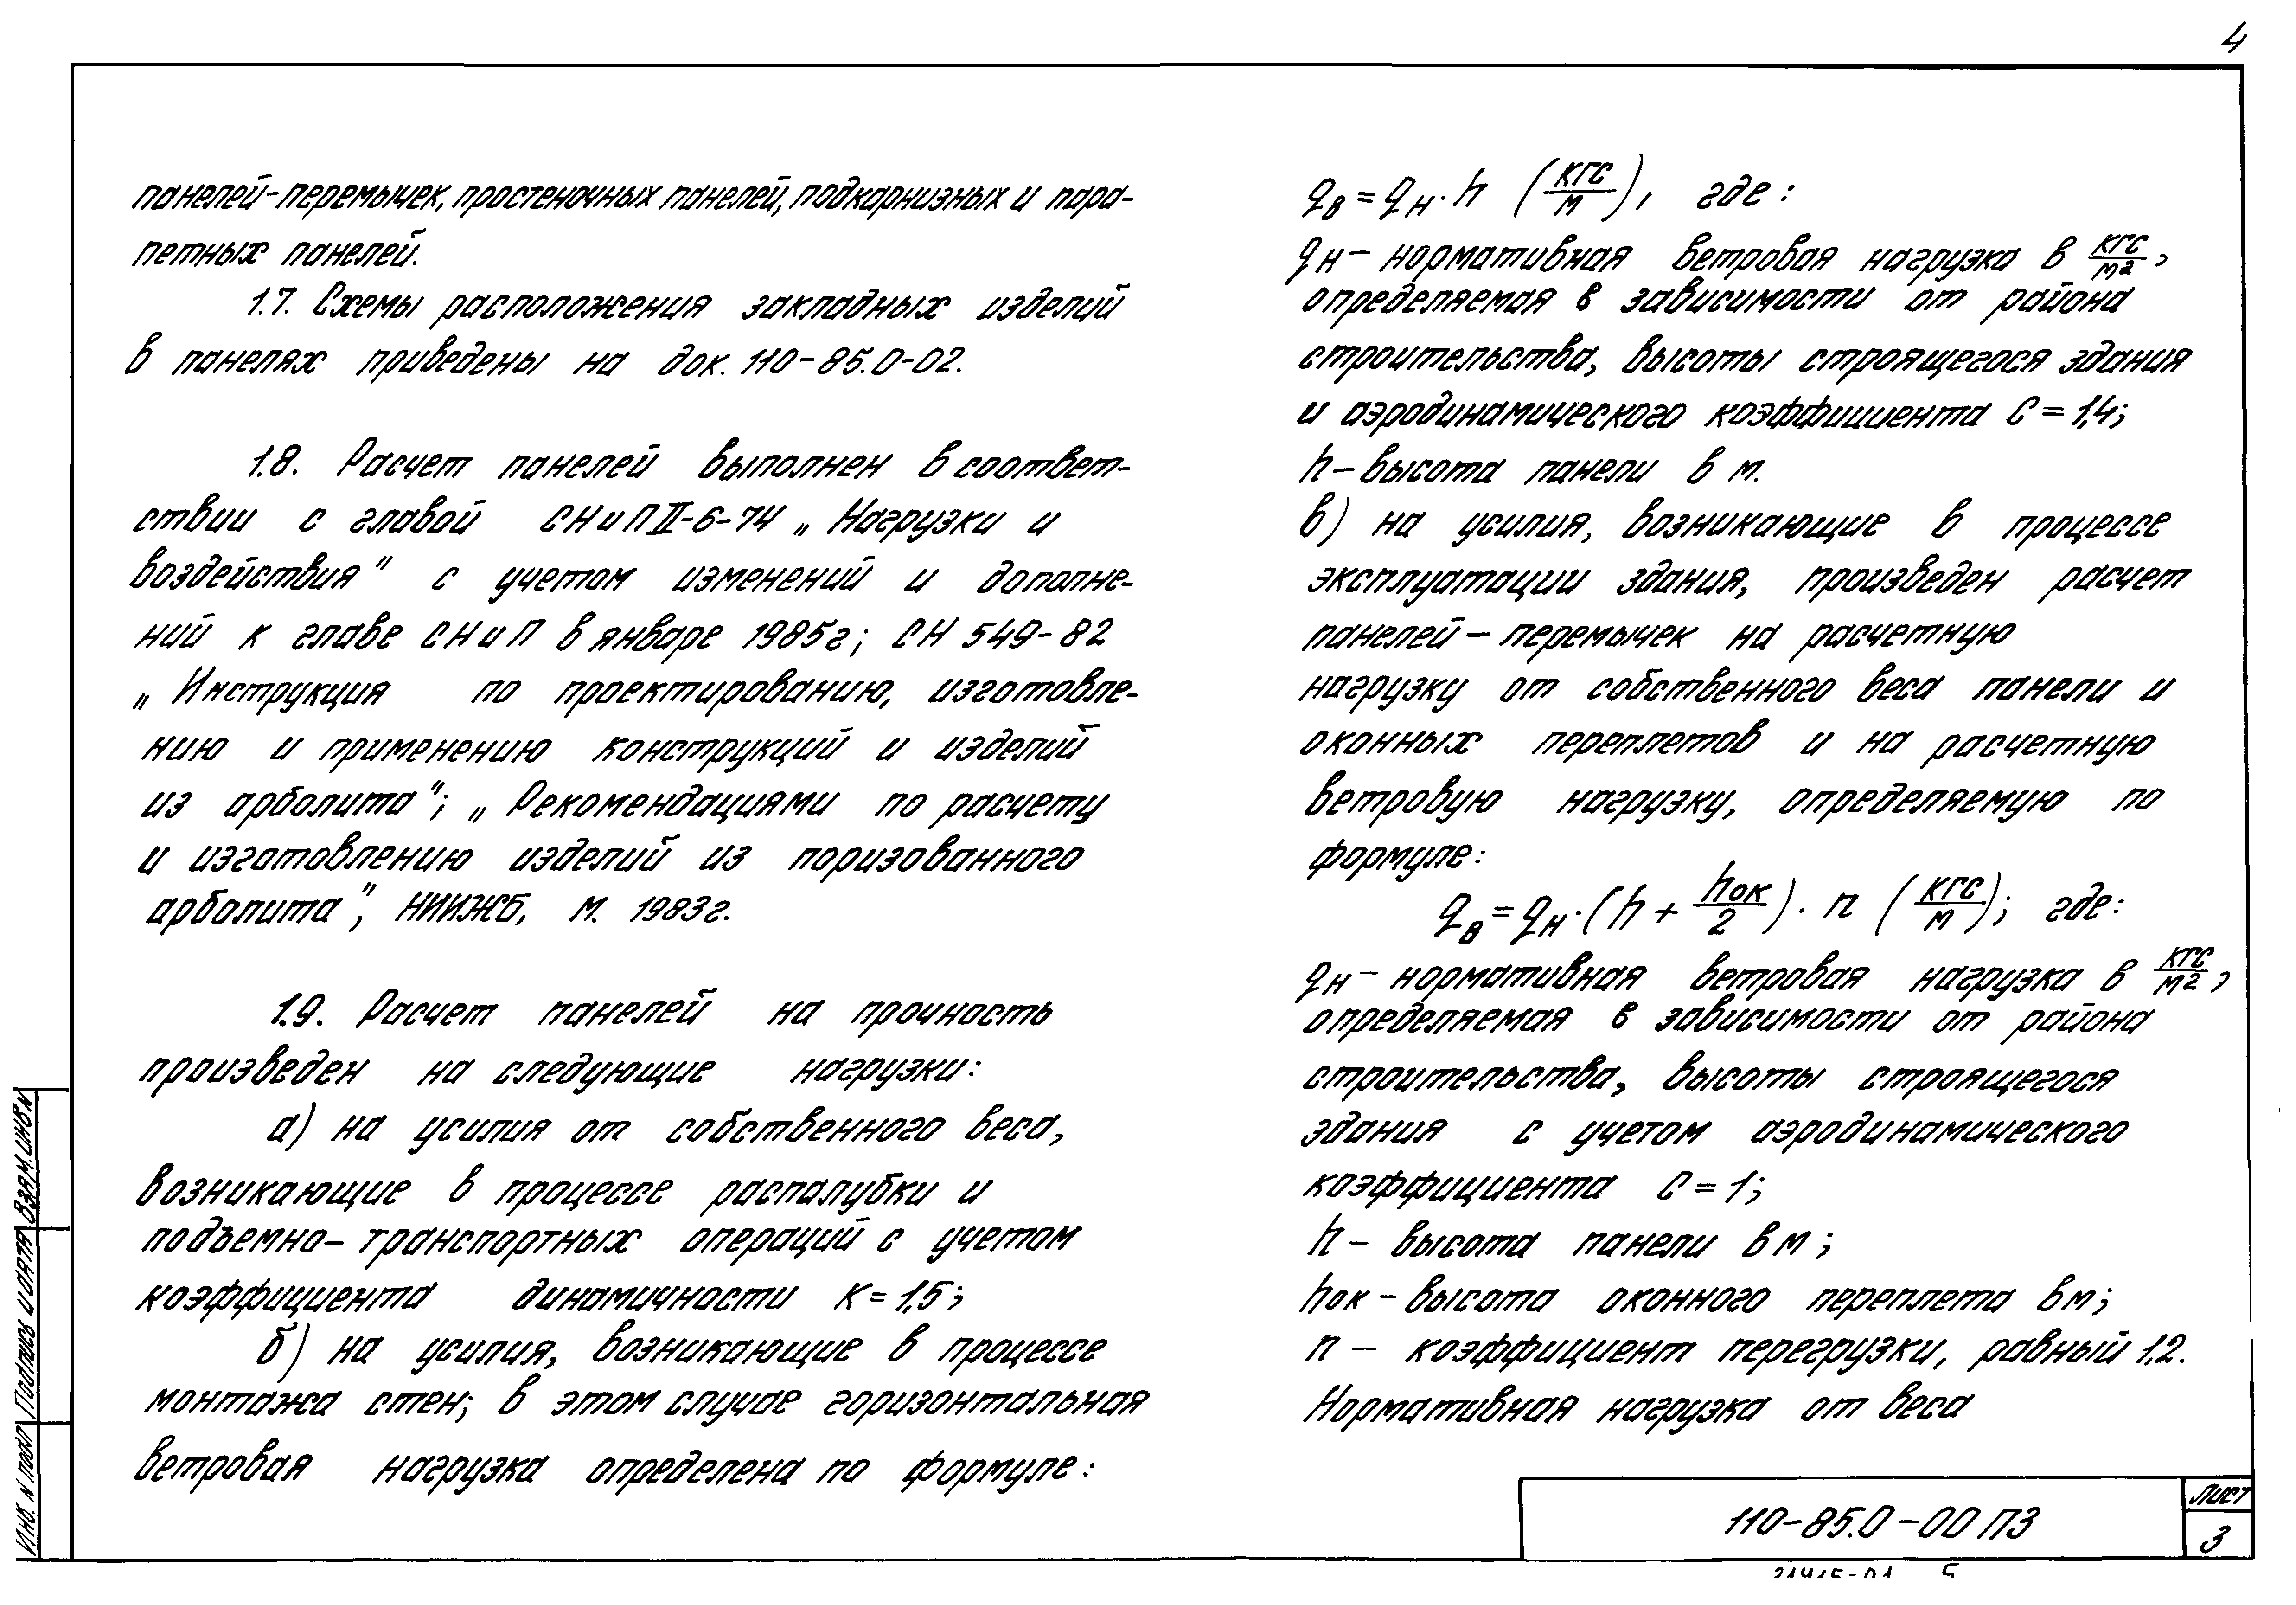 4
панелей-перемычек, простеночных панелей, подкарнизных и пара-
петных панелей.
1.7. Схемы расположения закладных изделий
в панелях приведены на док. 110-85.0-02.
1.8. Расчет панелей выполнен в соответ-
ствии с главой СНиП II-6-74 „Нагрузки и
воздействия" с учетом изменений и дополне-
ний к главе СНиП в январе 1985г; СН 549-82
„Инструкция по проектированию, изготовле-
нию и применению конструкций и изделий
из арболита"; „Рекомендациями по расчету
и изготовлению изделий из поризованного
арболита", НИИЖБ, М. 1983г.
1.9. Расчет панелей на прочность
произведен на следующие нагрузки:
а) на усилия от собственного веса,
возникающие в процессе распалубки и
подъемно-транспортных операций с учетом
коэффициента динамичности К=1,5;
б) на усилия, возникающие в процессе
монтажа стен; в этом случае горизонтальная
ветровая нагрузка определена по формуле:
qв = qн · h (кгс/м), где:
qн – нормативная ветровая нагрузка в кгс/м²,
определяемая в зависимости от района
строительства, высоты строящегося здания
и аэродинамического коэффициента С=1,4;
h – высота панели в м.
в) на усилия, возникающие в процессе
эксплуатации здания, произведен расчет
панелей-перемычек на расчетную
нагрузку от собственного веса панели и
оконных переплетов и на расчетную
ветровую нагрузку, определяемую по
формуле:
qв = qн · (h + hок/2) · n (кгс/м); где:
qн – нормативная ветровая нагрузка в кгс/м²,
определяемая в зависимости от района
строительства, высоты строящегося
здания с учетом аэродинамического
коэффициента С=1;
h – высота панели в м;
hок – высота оконного переплета в м;
n – коэффициент перегрузки, равный 1,2.
Нормативная нагрузка от веса
Инв. N подл Подпись и дата Взам.инв N
110-85.0-00 ПЗ
Лист
3